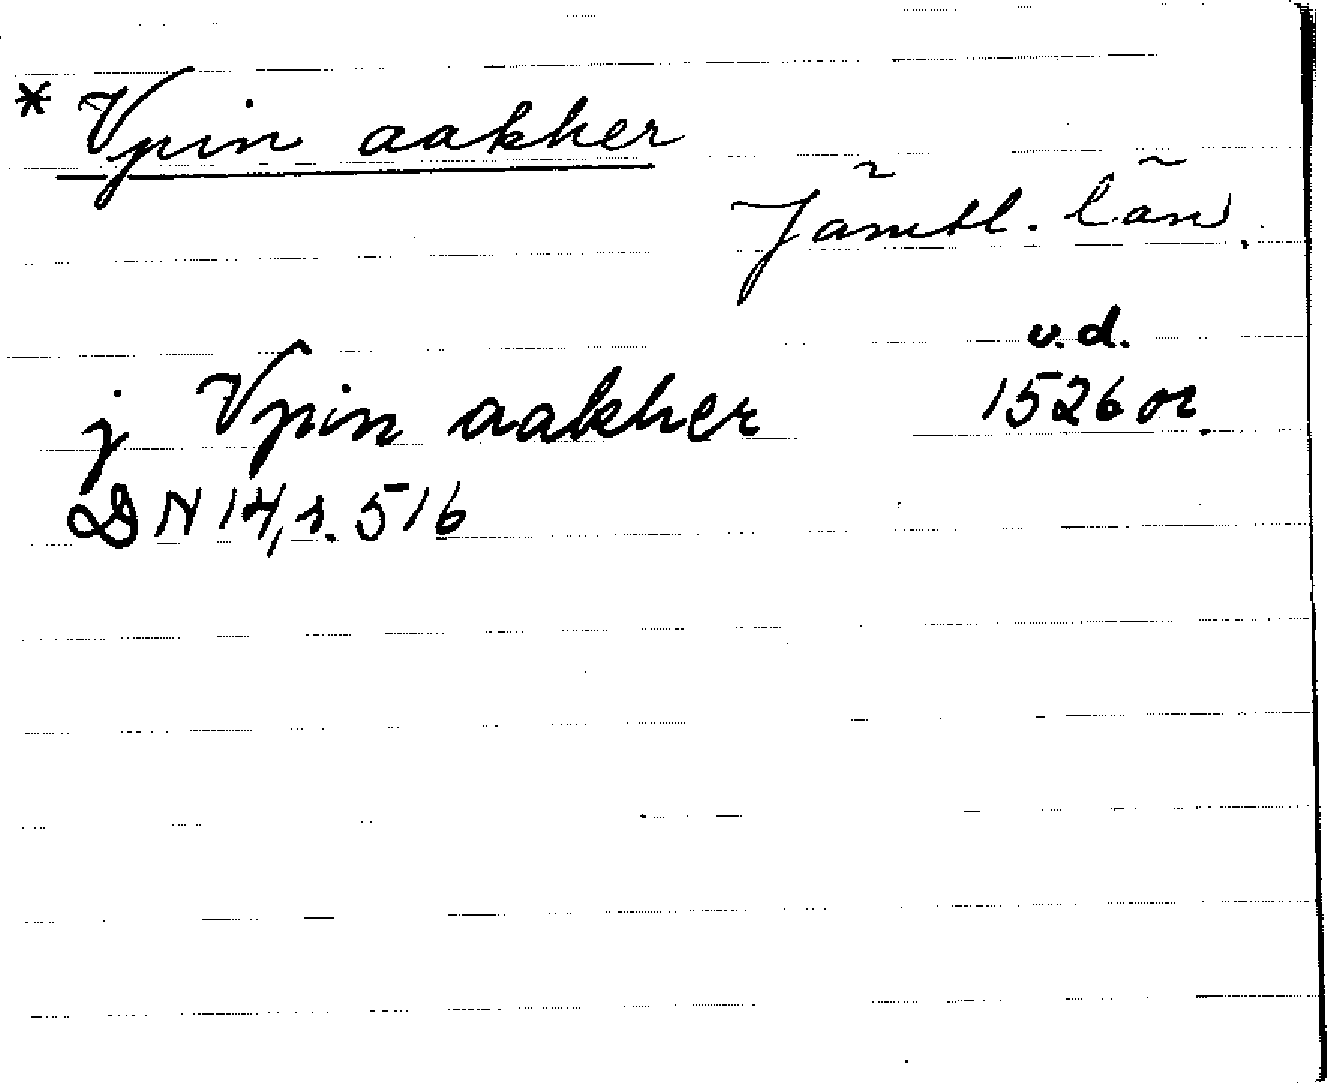 * Vpin aakher
Jämtl. län.
u.d.
j Vpin aakher 1526 or.
DN 14, s. 516